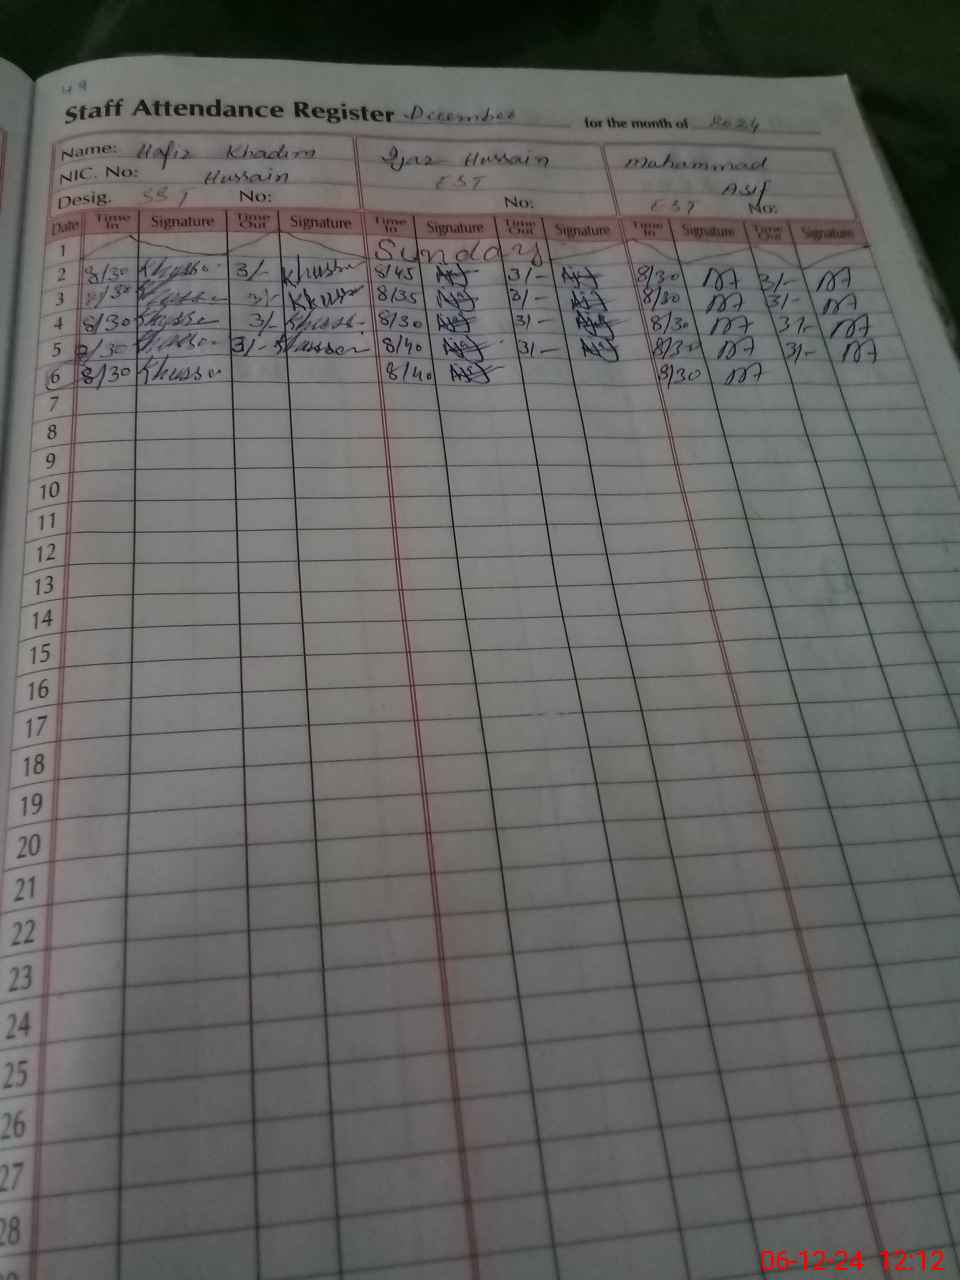 49
Staff Attendance Register December for the month of 2024
Name: Hafiz Khadim Ijaz Hussain Muhammad
NIC. No: Hussain EST Asif
Desig. SST No: No: EST No:
Date Time In Signature Time Out Signature Time In Signature Time Out Signature Time In Signature Time Out Signature
1 Sunday
2 8/30 3/- 8/45 3/- 8/30 3/-
3 8/30 3/- 8/35 3/- 8/30 3/-
4 8/30 3/- 8/30 3/- 8/30 3/-
5 8/30 3/- 8/40 3/- 8/30 3/-
6 8/30 8/40 8/30
7
8
9
10
11
12
13
14
15
16
17
18
19
20
21
22
23
24
25
26
27
28
06-12-24 12:12